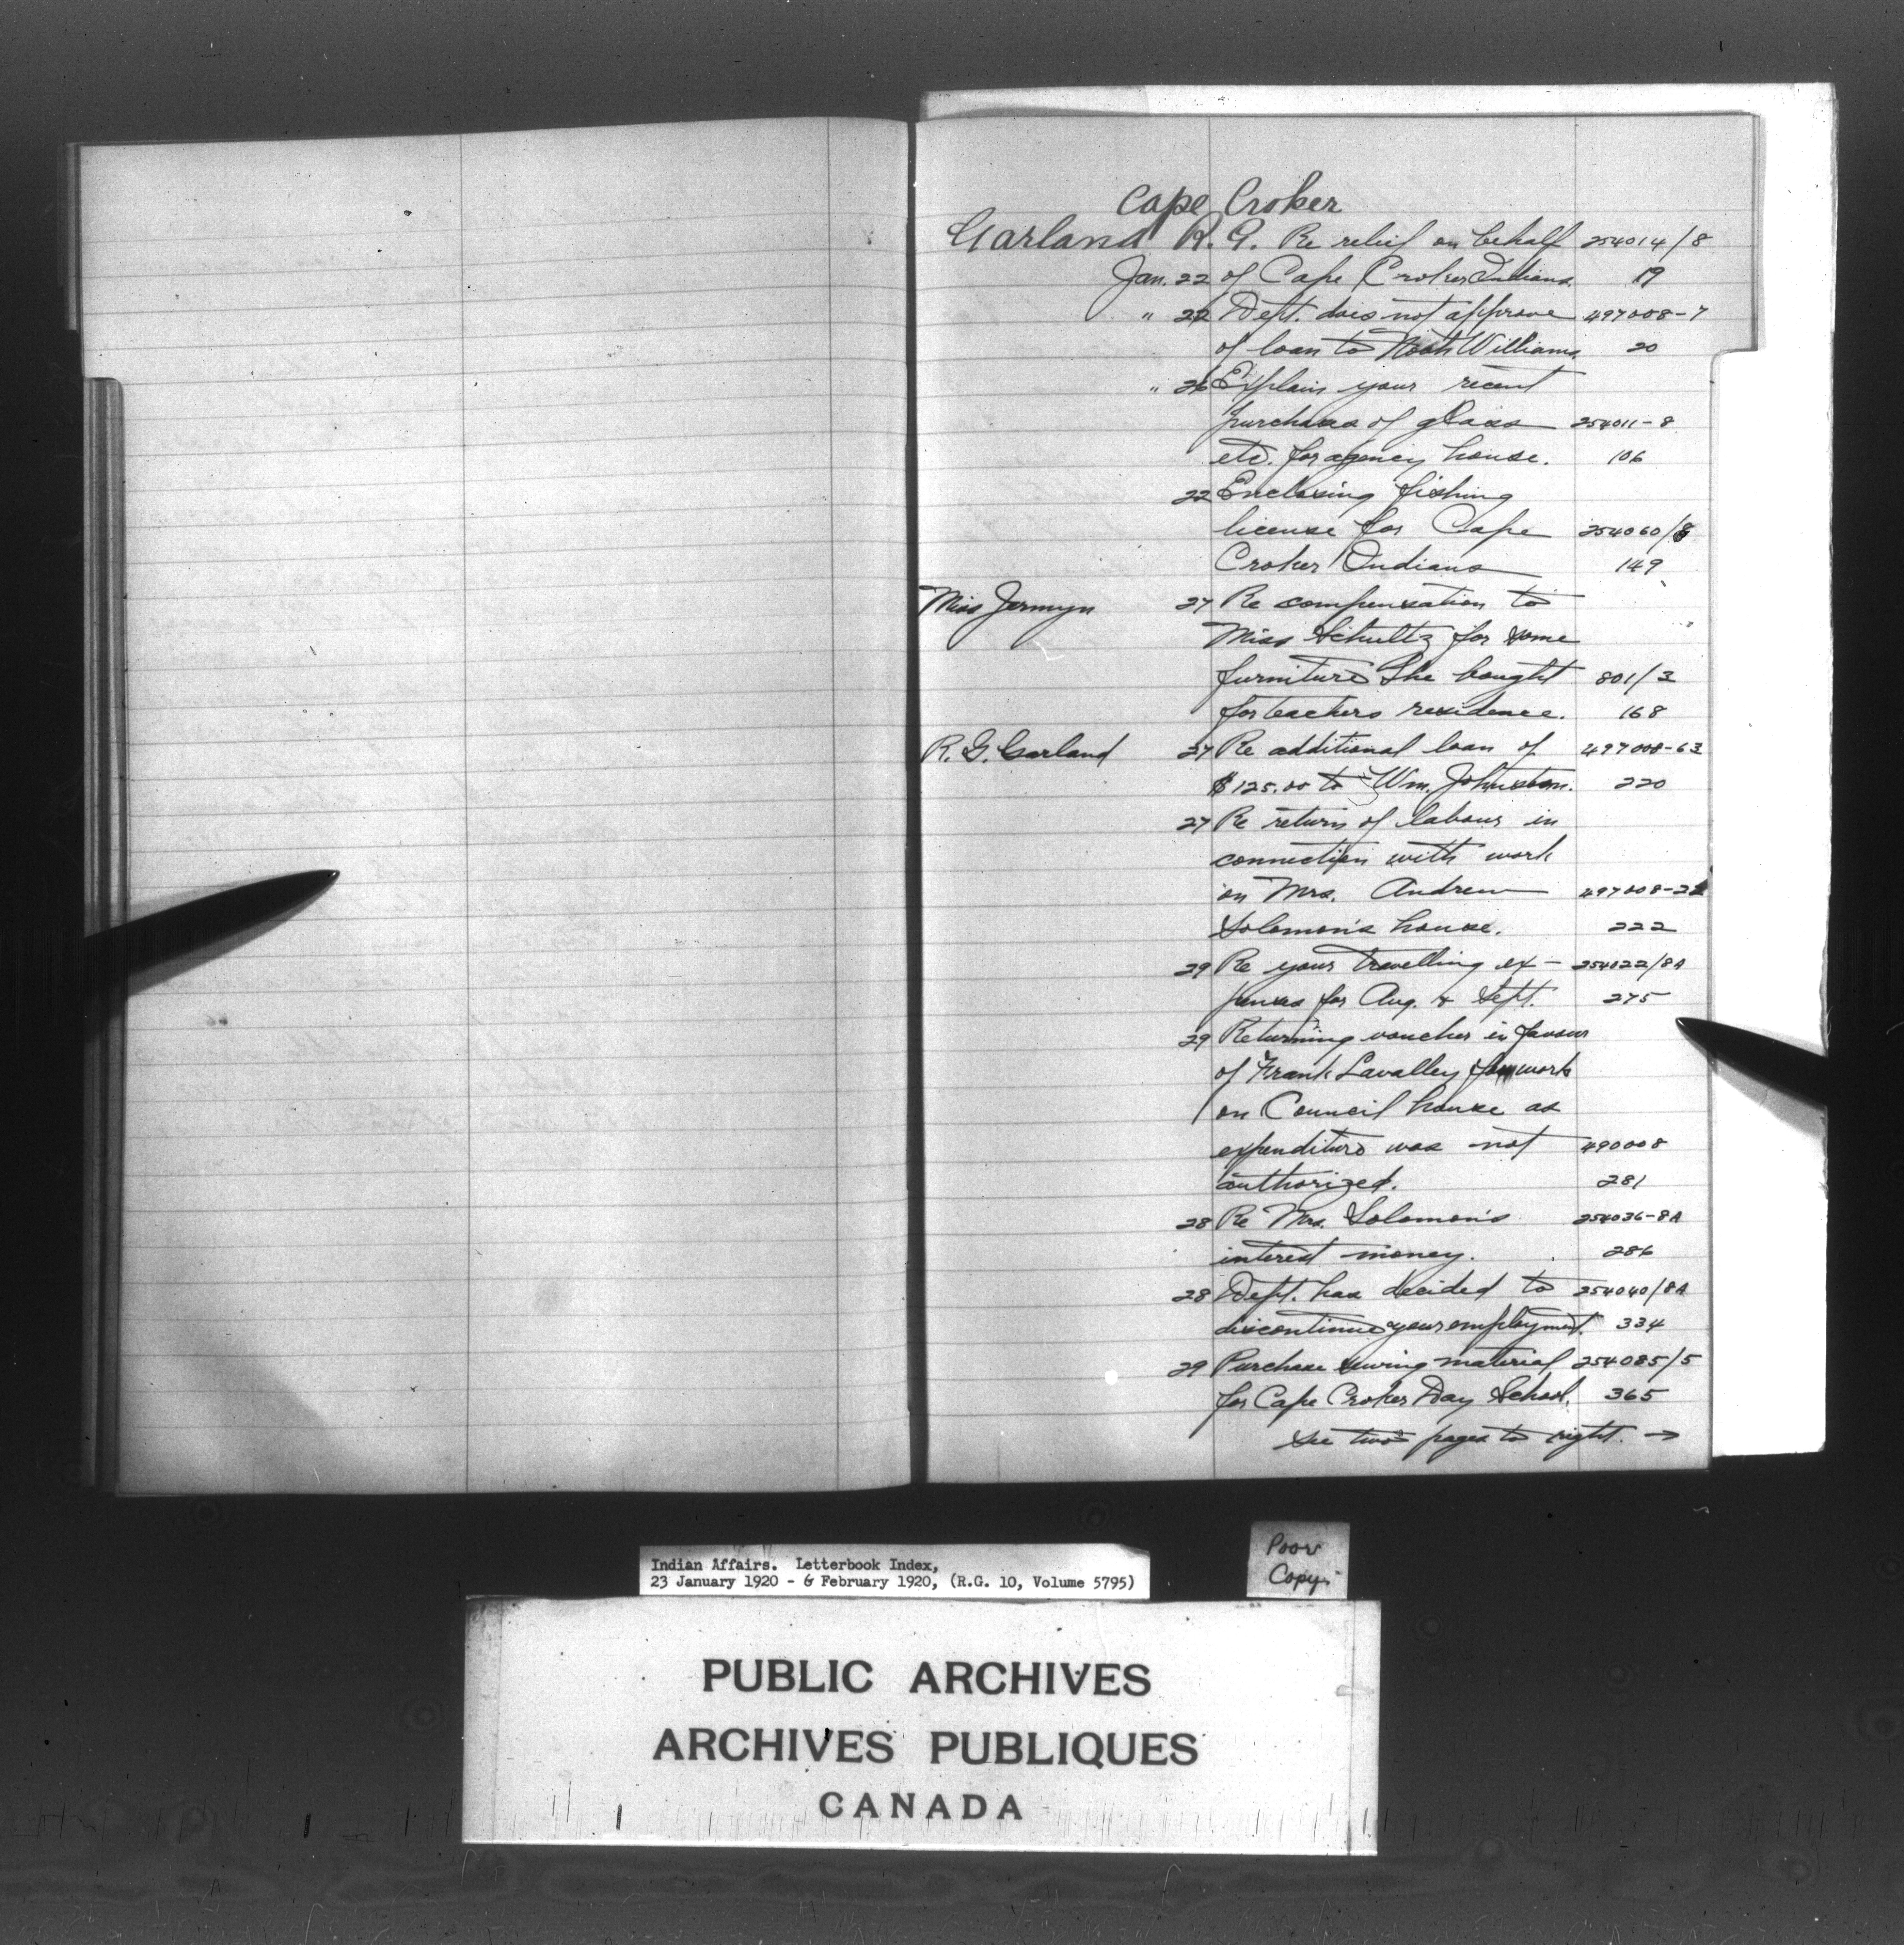 Cape Croker
Garland R. G. Re relief on behalf 254014/8
Jan. 22 of Cape Croker Indians. 19
" 22 Dept. does not approve 497008-7
of loan to Noah Williams. 20
" 26 Explain your recent
purchases of glass 254011-8
etc. for agency house. 106
22 Enclosing fishing
license for Cape 254060/8
Croker Indians 149
Miss Jermyn 27 Re compensation to
Miss Schultz for some
furniture she bought 801/3
for teachers residence. 168
R. G. Garland 27 Re additional loan of 497008-63
$125.00 to Wm. Johnston. 220
27 Re return of labour in
connection with work
on Mrs. Andrew 497008-22
Solomon's house. 222
29 Re your travelling ex- 254022/8A
penses for Aug. & Sept. 275
29 Returning voucher in favour
of Frank Lavalley for work
on Council house as
expenditure was not 490008
authorized. 281
28 Re Mrs. Solomon's 254036-8A
interest money. 286
28 Dept. has decided to 254040/8A
discontinue your employment. 334
29 Purchase sewing material 254085/5
for Cape Croker Day School. 365
see two pages to right. →
Indian Affairs. Letterbook Index,
23 January 1920 - 6 February 1920, (R.G. 10, Volume 5795)
Poor
Copy.
PUBLIC ARCHIVES
ARCHIVES PUBLIQUES
CANADA